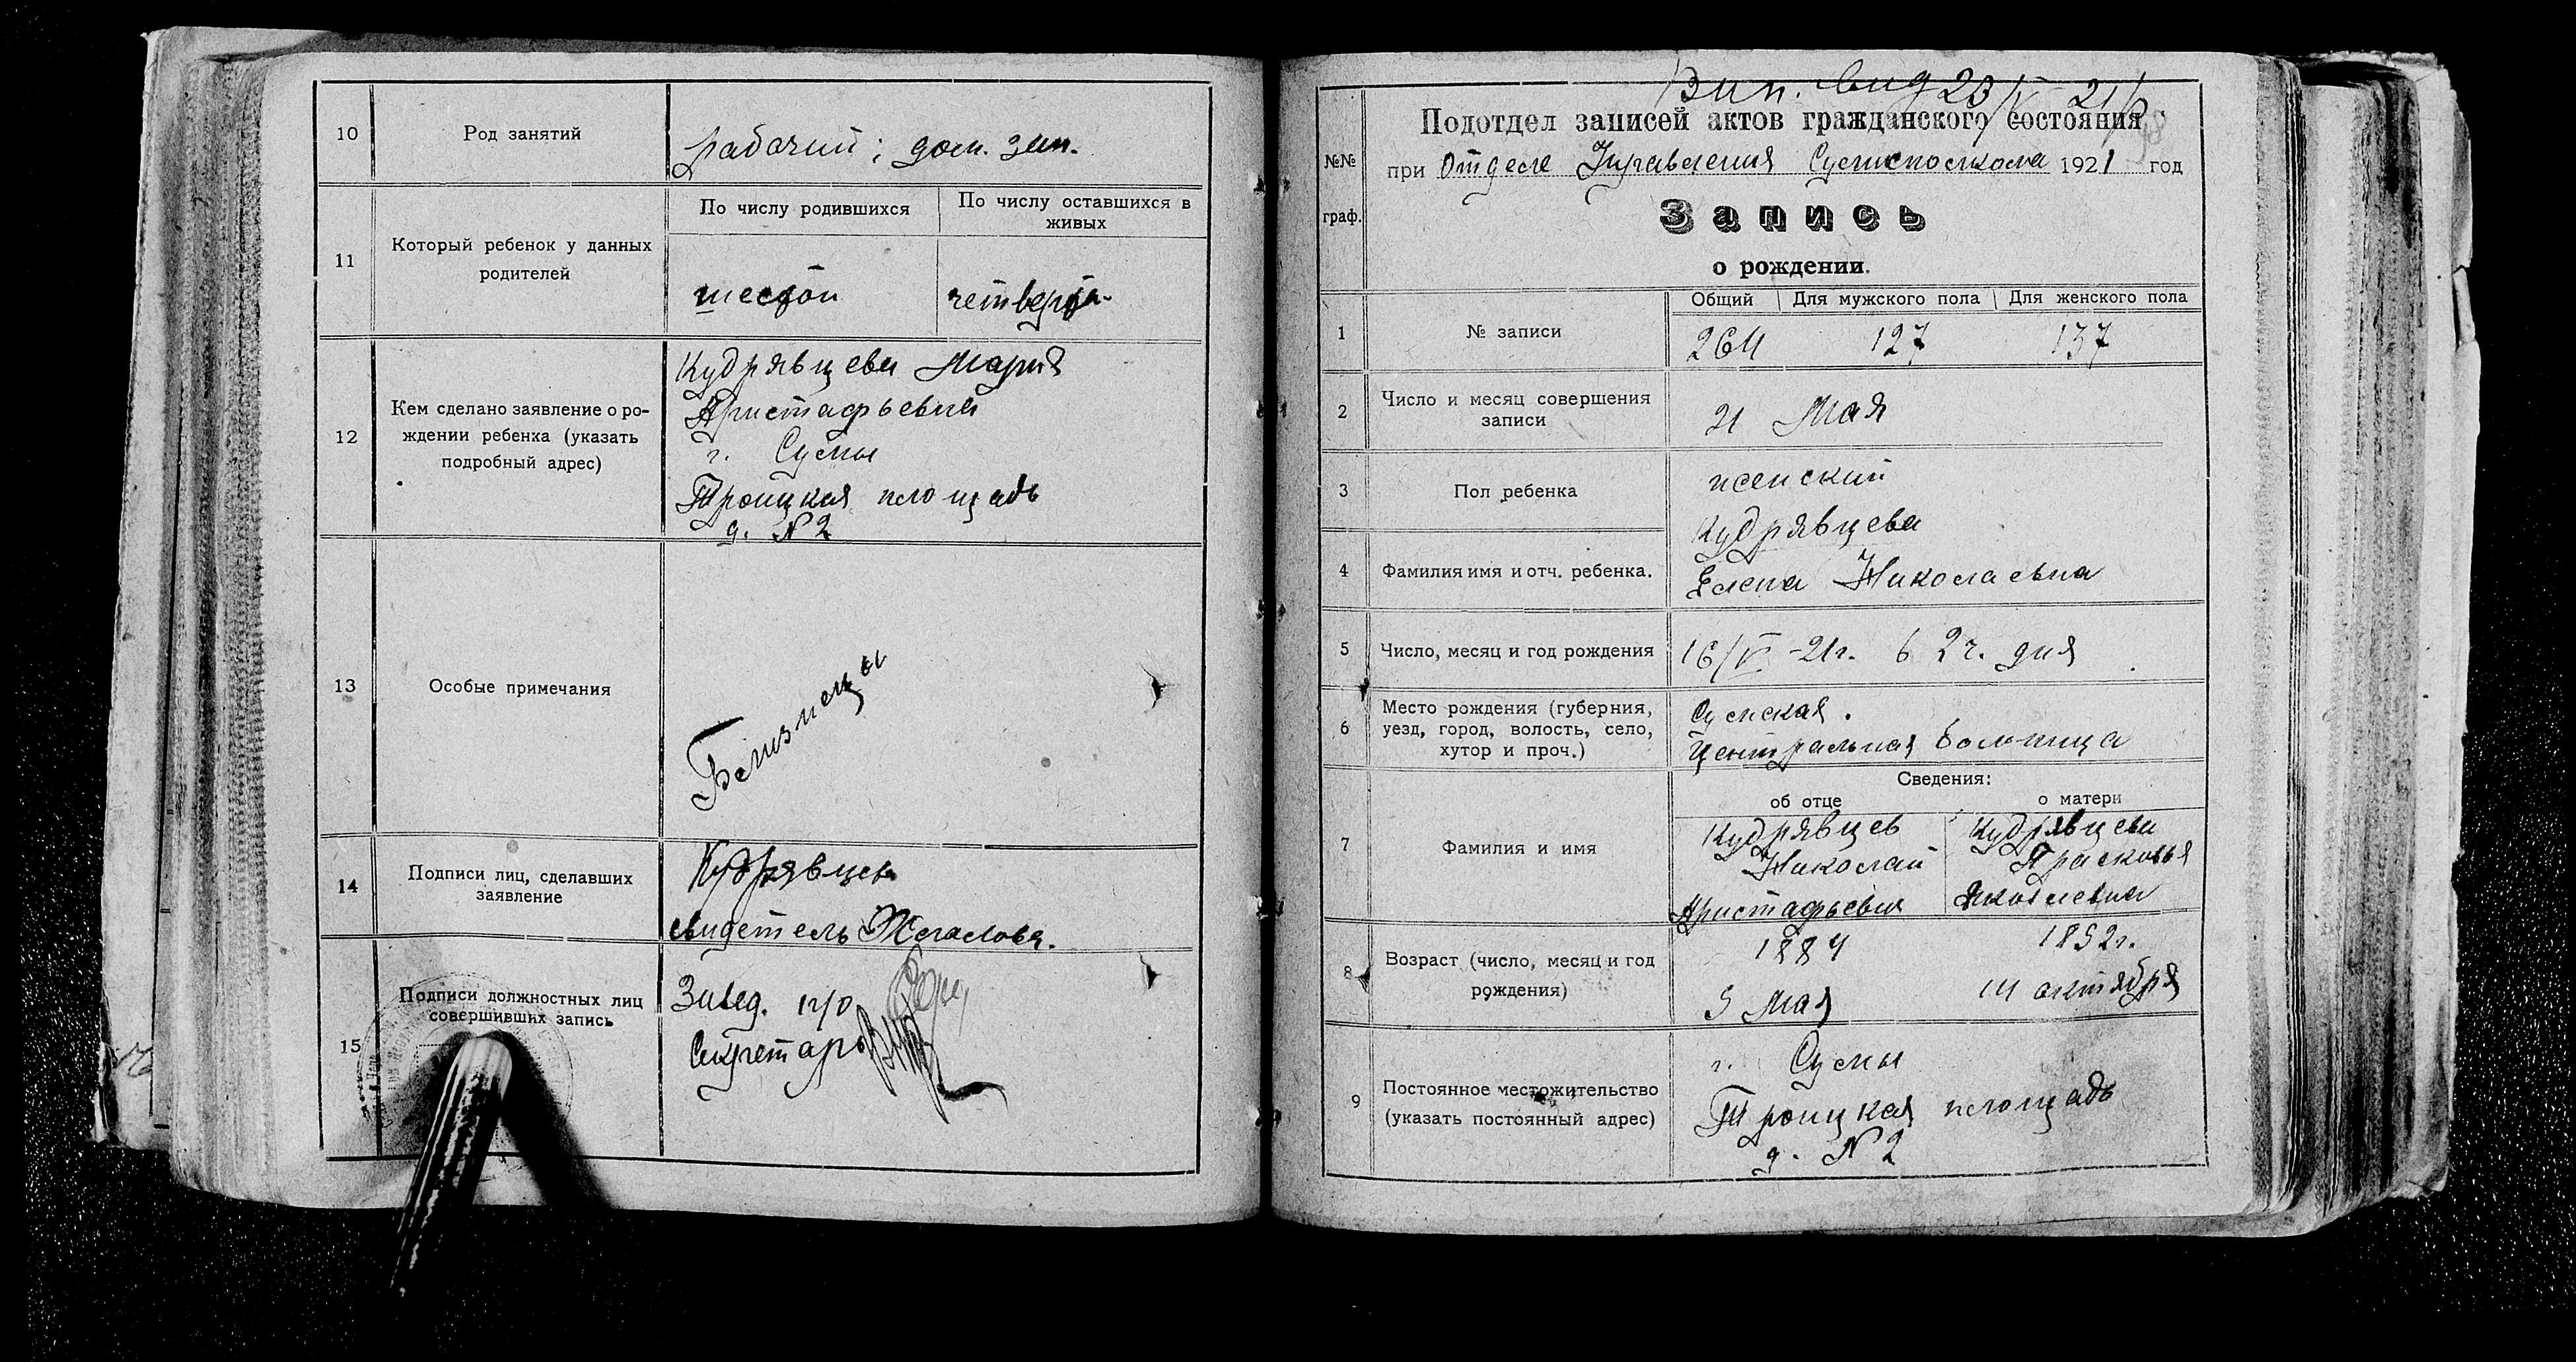 10
Род занятий
рабочий; дом. зан.
11
Который ребенок у данных
родителей
По числу родившихся
По числу оставшихся в
живых
шестой
четверта
12
Кем сделано заявление о ро-
ждении ребенка (указать
подробный адрес)
Кудрявцева Мария
Аристафьевна
г. Сумы
Троицкая площадь
д. N 2
13
Особые примечания
Близнецы
14
Подписи лиц, сделавших
заявление
Кудрявцева
свидетель Жегалова.
15
Подписи должностных лиц
совершивших запись
Завед. п/о
Секретарь
Вип. вид 23/V 21
№№
граф.
Подотдел записей актов гражданского состояния
при Отделе Управления Сумисполкома 1921 год
Запись
о рождении.
1
№ записи
Общий Для мужского пола Для женского пола
264 127 137
2
Число и месяц совершения
записи
21 Мая
3
Пол ребенка
женский
4
Фамилия имя и отч. ребенка.
Кудрявцева
Елена Николаевна
5
Число, месяц и год рождения
16/V -21г. в 2 ч. дня
6
Место рождения (губерния,
уезд, город, волость, село,
хутор и проч.)
Сумская.
Центральная больница
7
Фамилия и имя
Сведения:
об отце
о матери
Кудрявцев
Николай
Аристафьевич
Кудрявцева
Прасковья
Яковлевна
8
Возраст (число, месяц и год
рождения)
1884
5 Мая
1892г.
14 октября
9
Постоянное местожительство
(указать постоянный адрес)
г. Сумы
Троицкая площадь
д. N 2